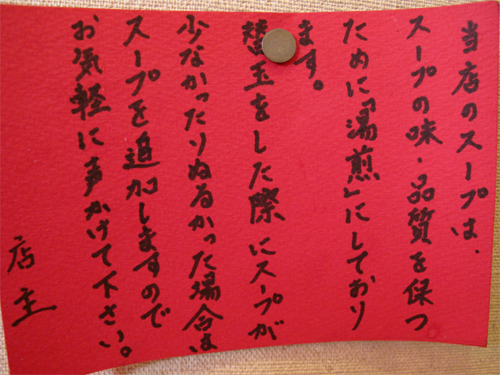 当店のスープは、
スープの味・品質を保つ
ために「湯煎」にしており
ます。
替玉をした際にスープが
少なかったりぬるかった場合は
スープを追加しますので
お気軽に声かけて下さい。
店主